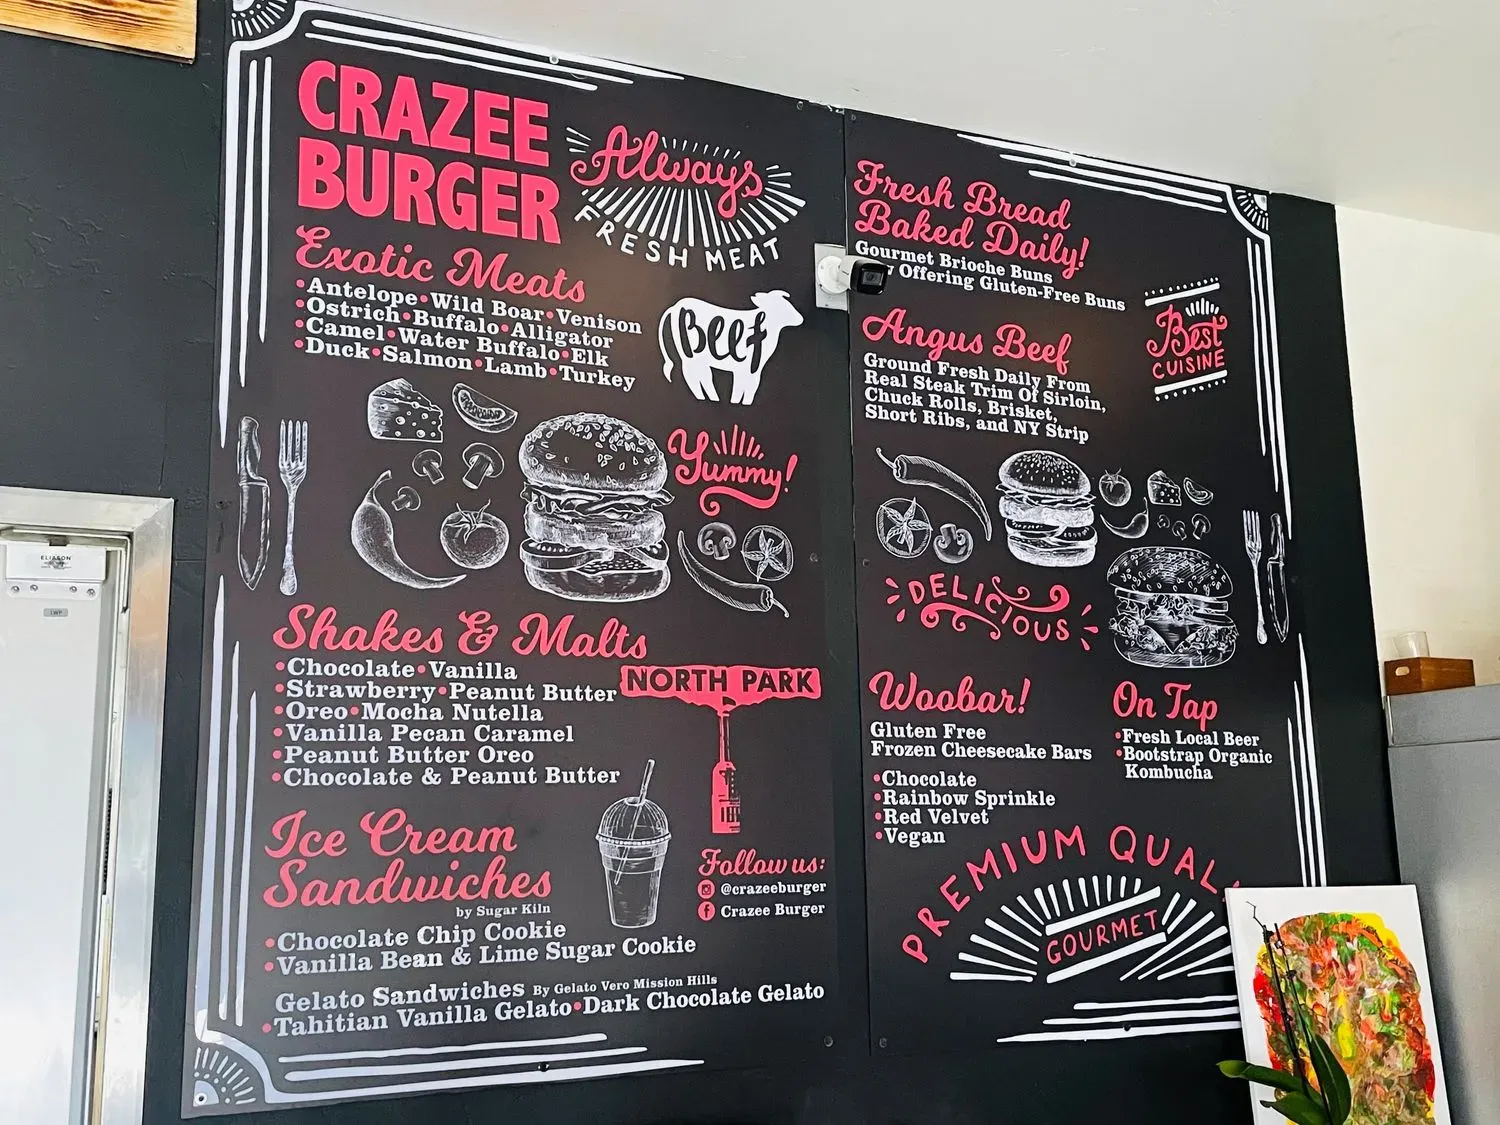 CRAZEE
BURGER
Always
FRESH MEAT
Exotic Meats
•Antelope•Wild Boar•Venison
•Ostrich•Buffalo•Alligator
•Camel•Water Buffalo•Elk
•Duck•Salmon•Lamb•Turkey
Beef
Yummy!
Shakes & Malts
•Chocolate•Vanilla
•Strawberry•Peanut Butter
•Oreo•Mocha Nutella
•Vanilla Pecan Caramel
•Peanut Butter Oreo
•Chocolate & Peanut Butter
NORTH PARK
Ice Cream
Sandwiches
by Sugar Kiln
•Chocolate Chip Cookie
•Vanilla Bean & Lime Sugar Cookie
Gelato Sandwiches By Gelato Vero Mission Hills
•Tahitian Vanilla Gelato•Dark Chocolate Gelato
Follow us:
@crazeeburger
Crazee Burger
Fresh Bread
Baked Daily!
Gourmet Brioche Buns
Offering Gluten-Free Buns
Best
CUISINE
Angus Beef
Ground Fresh Daily From
Real Steak Trim Of Sirloin,
Chuck Rolls, Brisket,
Short Ribs, and NY Strip
DELICIOUS
Woobar!
Gluten Free
Frozen Cheesecake Bars
•Chocolate
•Rainbow Sprinkle
•Red Velvet
•Vegan
On Tap
•Fresh Local Beer
•Bootstrap Organic
Kombucha
PREMIUM QUAL
GOURMET
ELIASON
LWP